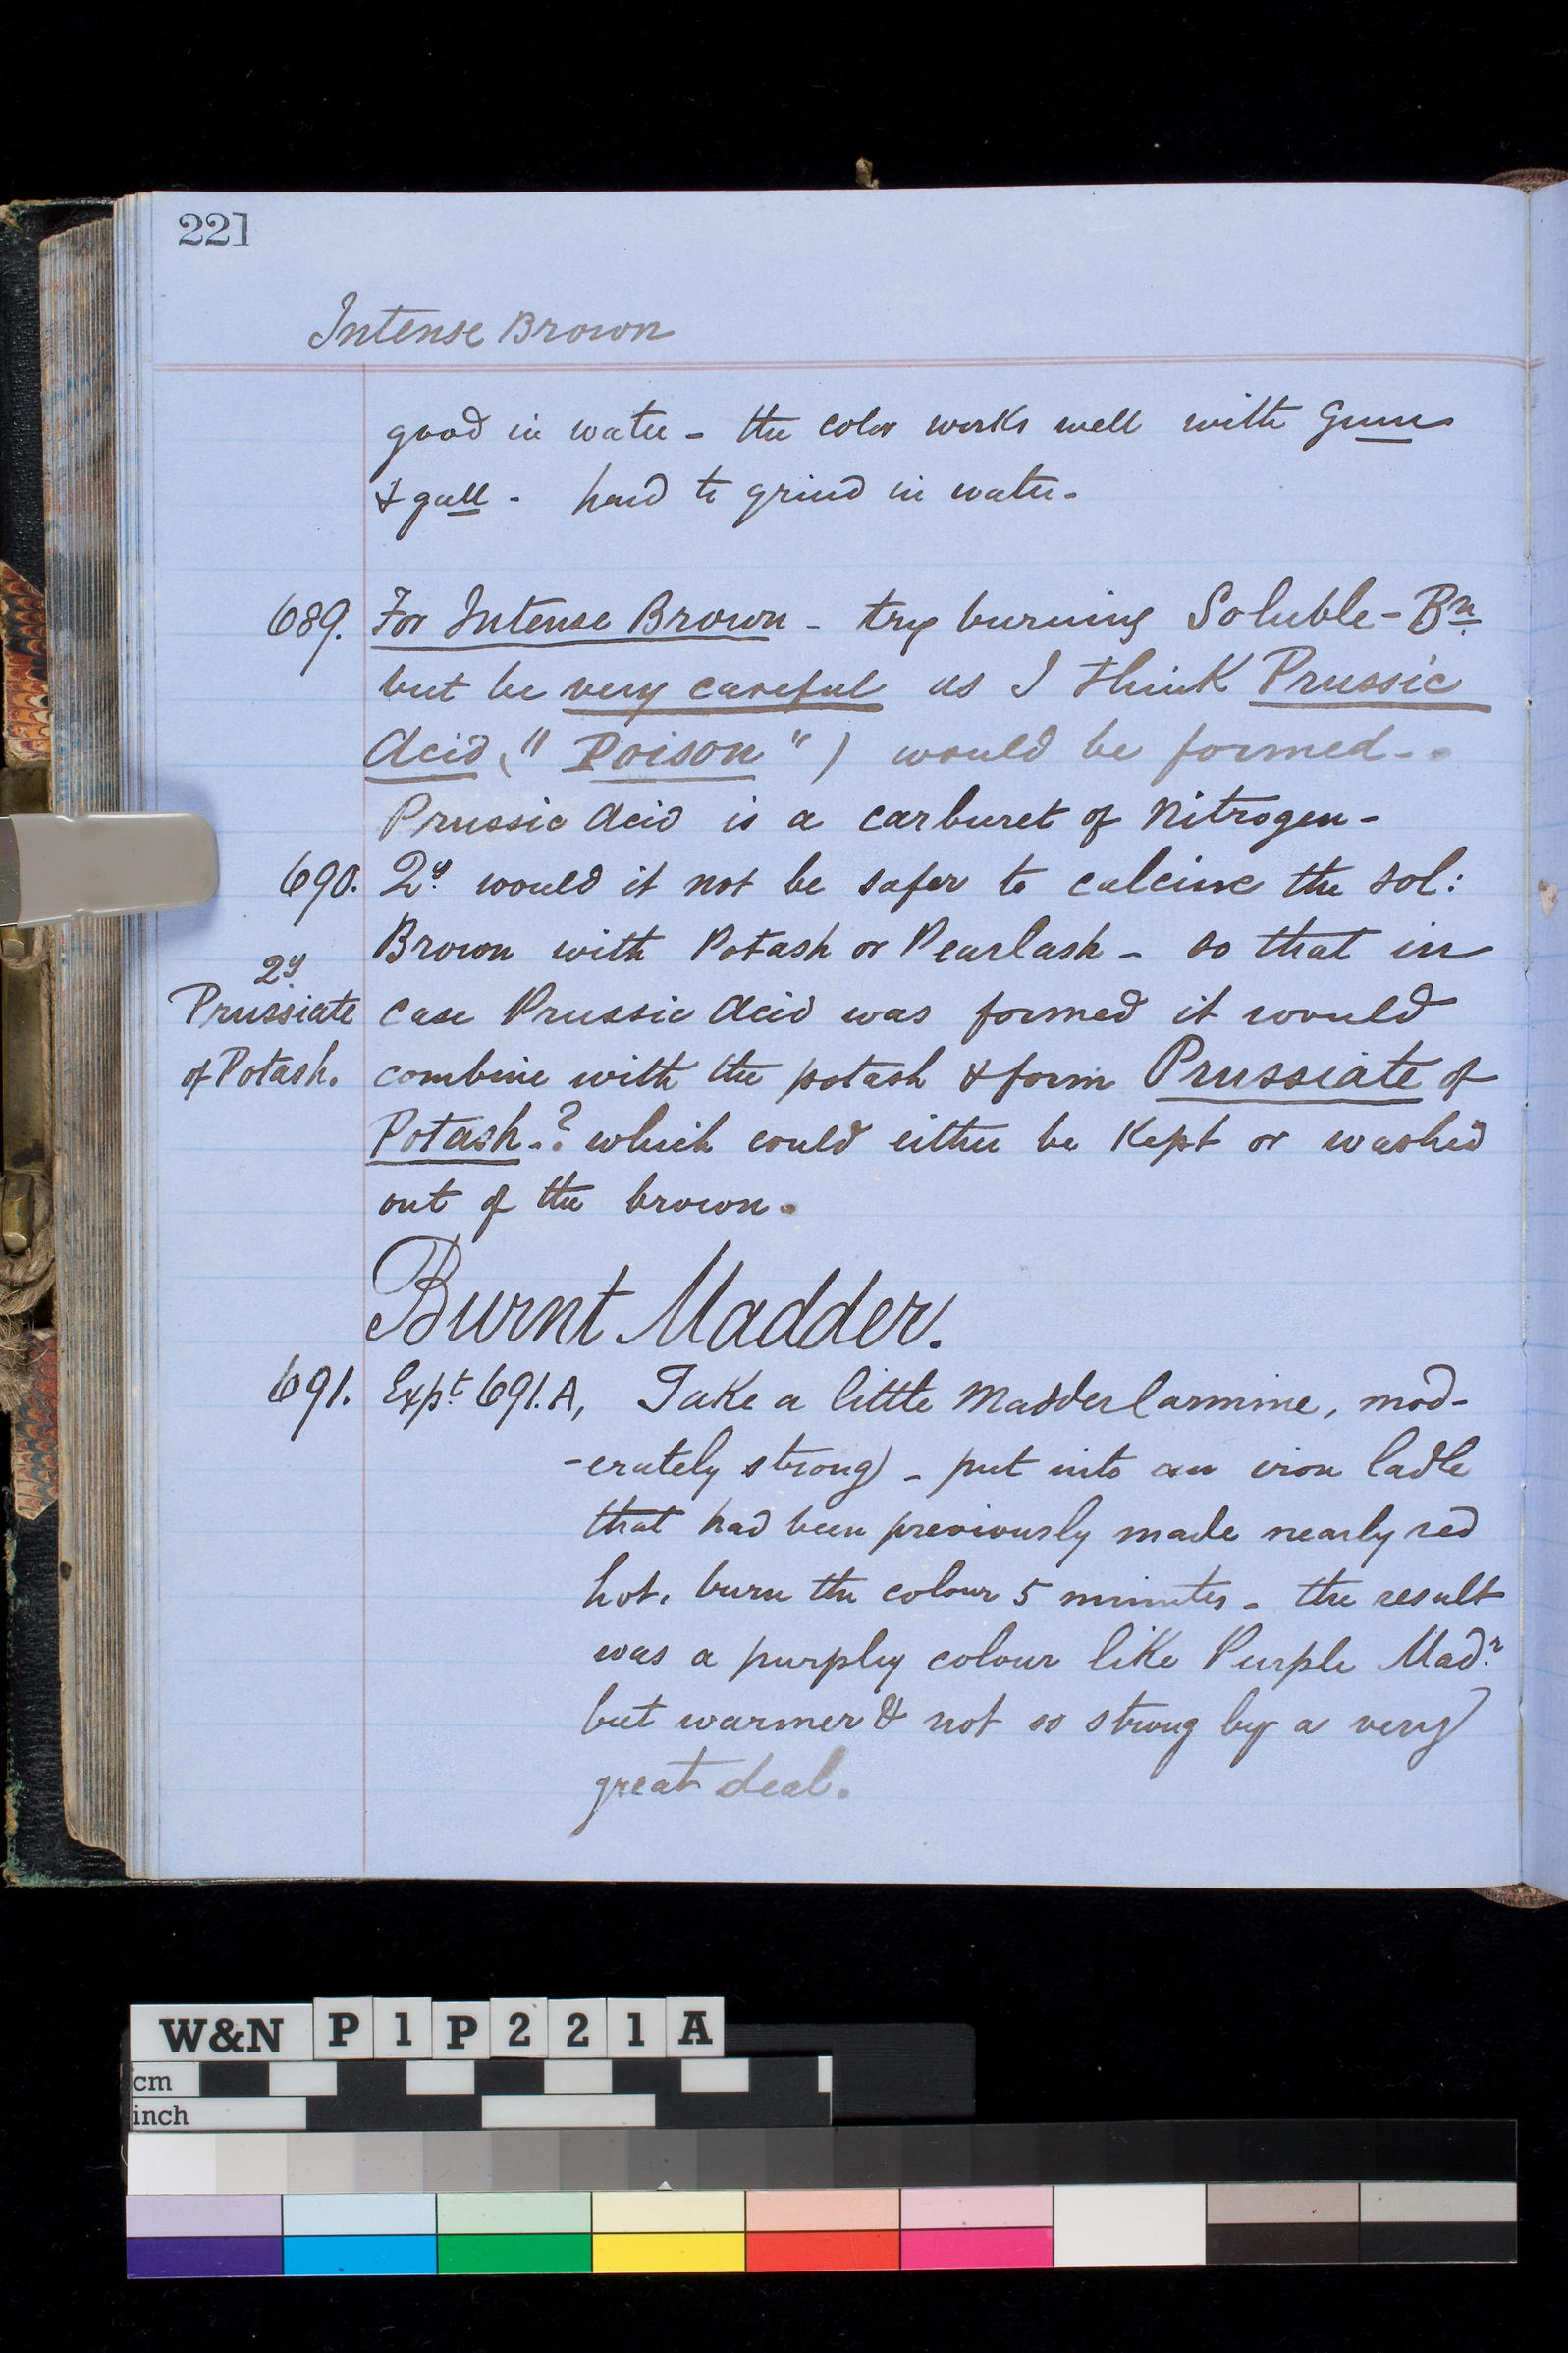 221
Intense Brown
good in water - the color works well with Gum
& gall - hard to grind in water -
689. For Intense Brown - try burning Soluble - Bn
but be very careful as I think Prussic
Acid, (" Poison ") would be formed -
Prussic Acid is a carburet of Nitrogen -
690. Qy. would it not be safer to calcine the sol:
Brown with Potash or Pearlash - so that in
Qy.
Prussiate case Prussic Acid was formed it would
of Potash. combine with the potash & form Prussiate of
Potash -? which could either be kept or washed
out of the brown.
Burnt Madder.
691. Expt. 691.A, Take a little Madder Carmine, mod-
-erately strong) - put into an iron ladle
that had been previously made nearly red
hot, burn the colour 5 minutes - the result
was a purpley colour like Purple Madr.
but warmer & not so strong by a very
great deal.
W&N P1P221A
cm
inch